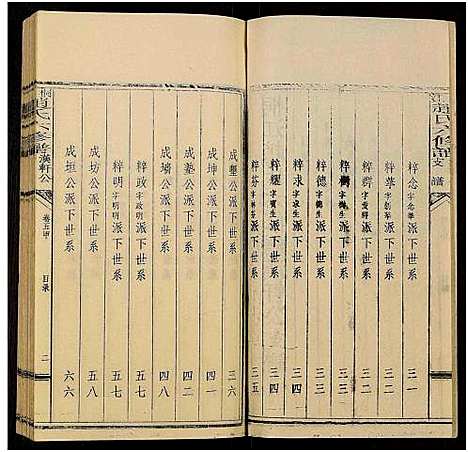 氏六修譜 支譜
粹念 字念華 派下世系 三一
粹華 派下世系 三二
粹 派下世系 三二
粹 派下世系 三三
粹德 字德生 派下世系 三三
粹求 字求生 派下世系 三四
粹耀 字賓生 派下世系 三四
粹芬 派下世系 三五
成 公派下世系 三六
成坤公派下世系 四一
成塾公派下世系 四二
成墙公派下世系 四八
粹政 字政明 派下世系 五七
粹明 字明明 派下世系 五七
成坊公派下世系 五八
成垣公派下世系 六六
氏六修譜 漢軒公
卷五 目录 二